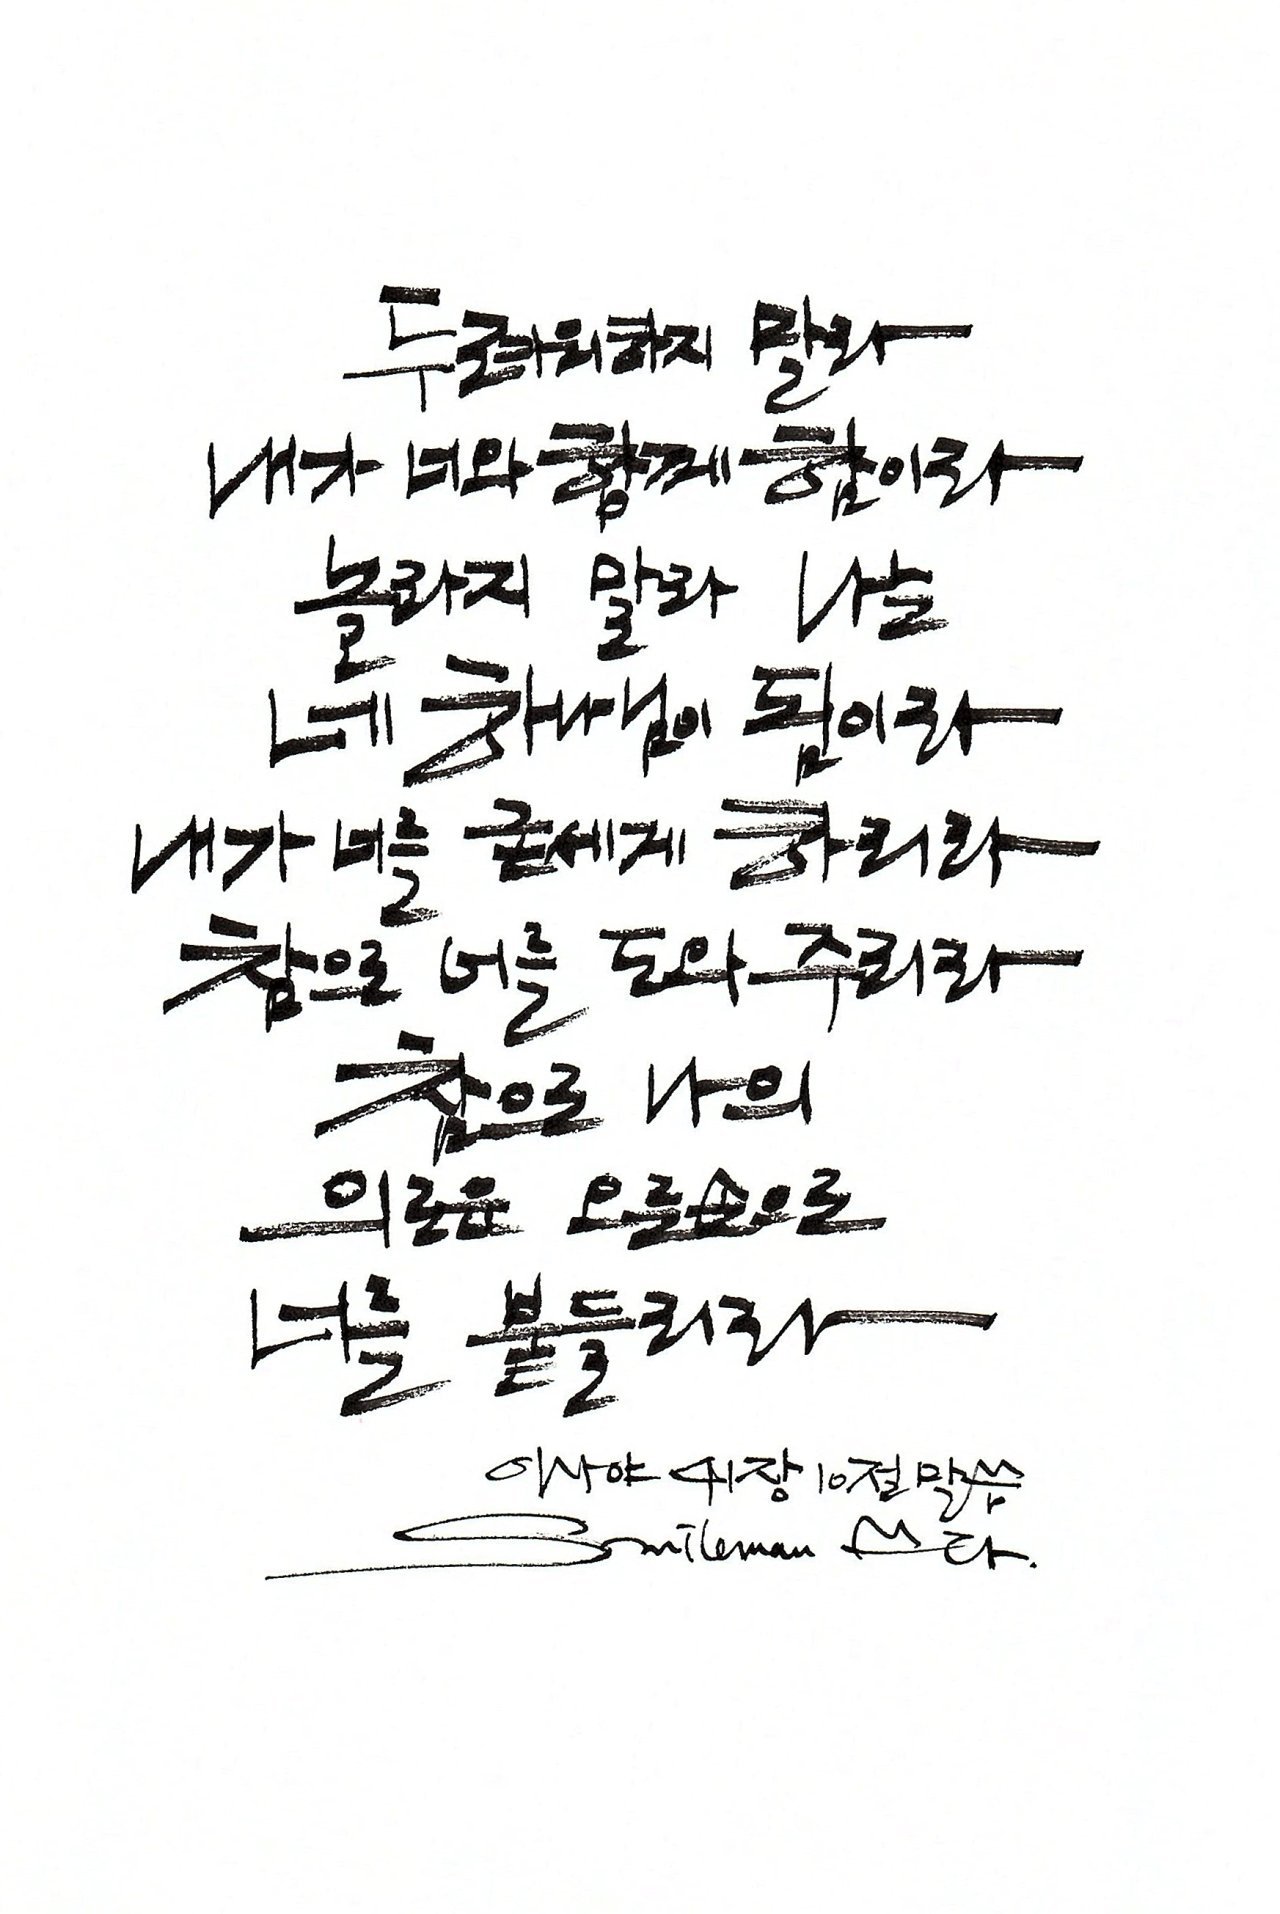 두려워하지 말라
내가 너와 함께 함이라
놀라지 말라 나는
네 하나님이 됨이라
내가 너를 굳세게 하리라
참으로 너를 도와 주리라
참으로 나의
의로운 오른손으로
너를 붙들리라
이사야 41장 10절 말씀
Smileman 쓰다.